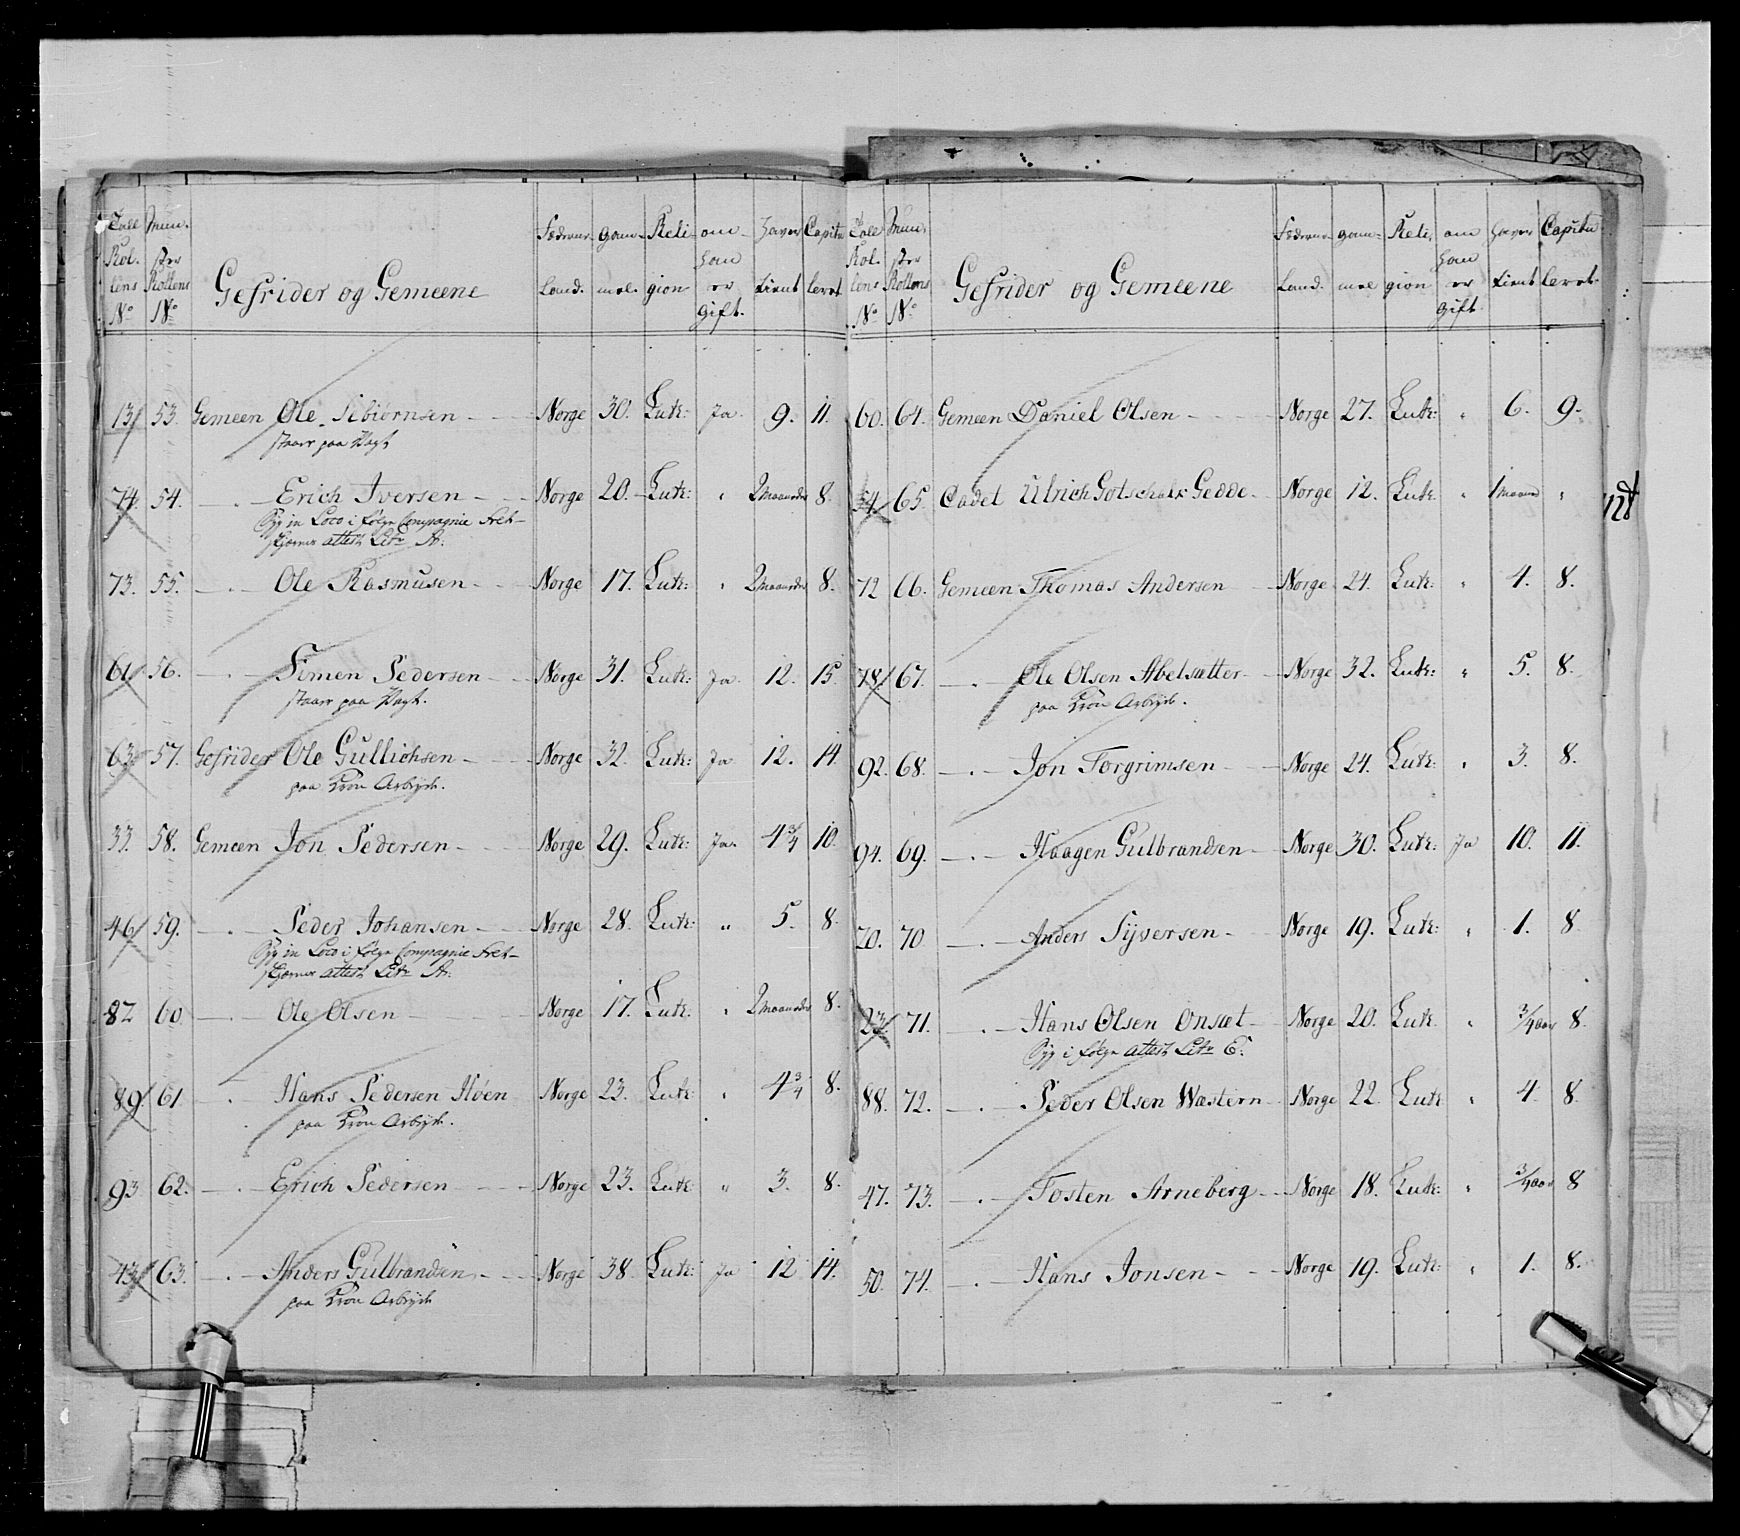 Tall Rol- lens No | Mun- ster Rollens No | Gefrider og Gemeene | Fæderne- Land. | gam- mel. | Reli- gion | om han er gift. | haver tient | Capitu- leret
13 53 Gemeen Ole Sibiörnsen - Norge 30. Luth: Ja 9. 11.
staar paa Vagt
74. 54. - Erich Iversen - Norge 20. Luth: " 2 maaneder 8.
Syg in Loco i følge Compagnie Felt-
skjærer attest Litr A:
73. 55. - Ole Rasmusen - Norge 17. Luth: " 2 maaneder 8.
61 56. - Simen Pedersen - Norge 31. Luth: Ja 12. 15
staar paa Vagt.
63 57. Gefrider Ole Gullichsen - Norge 32. Luth: Ja 12. 14.
paa Kron Arbejde.
33. 58. Gemeen Jon Pedersen - Norge 29. Luth: Ja 4 3/4 10.
46 59. - Peder Johansen - Norge 28. Luth: " 5. 8.
Syg in Loco i følge Compagnie Felt-
skjærer attest Litr A:
82 60 - Ole Olsen - Norge 17. Luth: " 2 maaneder 8.
89. 61 - Hans Pedersen Höen Norge 23. Luth: " 4 3/4 8.
paa Kron Arbejde.
93 62. - Erich Pedersen - Norge 23. Luth: " 3. 8.
43 63. - Anders Gulbrandsen - Norge 38. Luth: Ja 12 14.
paa Kron Arbejde
Tall Rol- lens No | Mun- ster Rollens No | Gefrider og Gemeene | Fæderne- Land. | gam- mel | Reli- gion | om han er gift. | haver tient | Capitu- leret.
60. 64. Gemeen Daniel Olsen - Norge 27. Luth: " 6. 9.
54 65. Cadet Ulrich Gotschalk Gedde - Norge 12. Luth " 1 maaned "
72 66. Gemeen Thomas Andersen Norge 24. Luth: " 4. 8.
78 67. - Ole Olsen Abelsætter - Norge 32. Luth: " 5. 8.
paa Kron Arbejde.
92. 68. - Jon Torgrimsen - Norge 24. Luth: " 3. 8.
94. 69. - Haagen Gulbrandsen - Norge 30. Luth: Ja 10. 11.
20. 70 - Anders Syversen - Norge 19. Luth: " 1. 8
23. 71. - Hans Olsen Onsæt - Norge 20. Luth " 3/4 aar 8.
Syg i følge attest Litr E:
88. 72. - Peder Olsen Wæstern - Norge 22. Luth " 4 8.
47. 73. - Tosten Arneberg - Norge 18. Luth: " 3/4 aar 8
50. 74. - Hans Jonsen - Norge 19. Luth: " 1. 8.